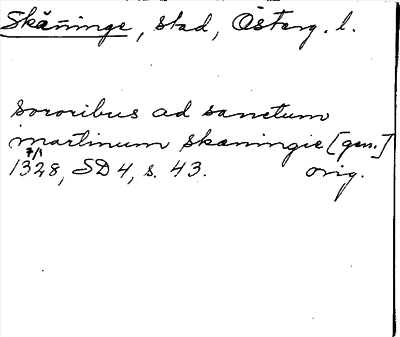 Skänninge, stad, Österg. l.
sororibus ad sanctum
martinum skæningie [gen.]
7/1
1328, SD 4, s. 43. orig.